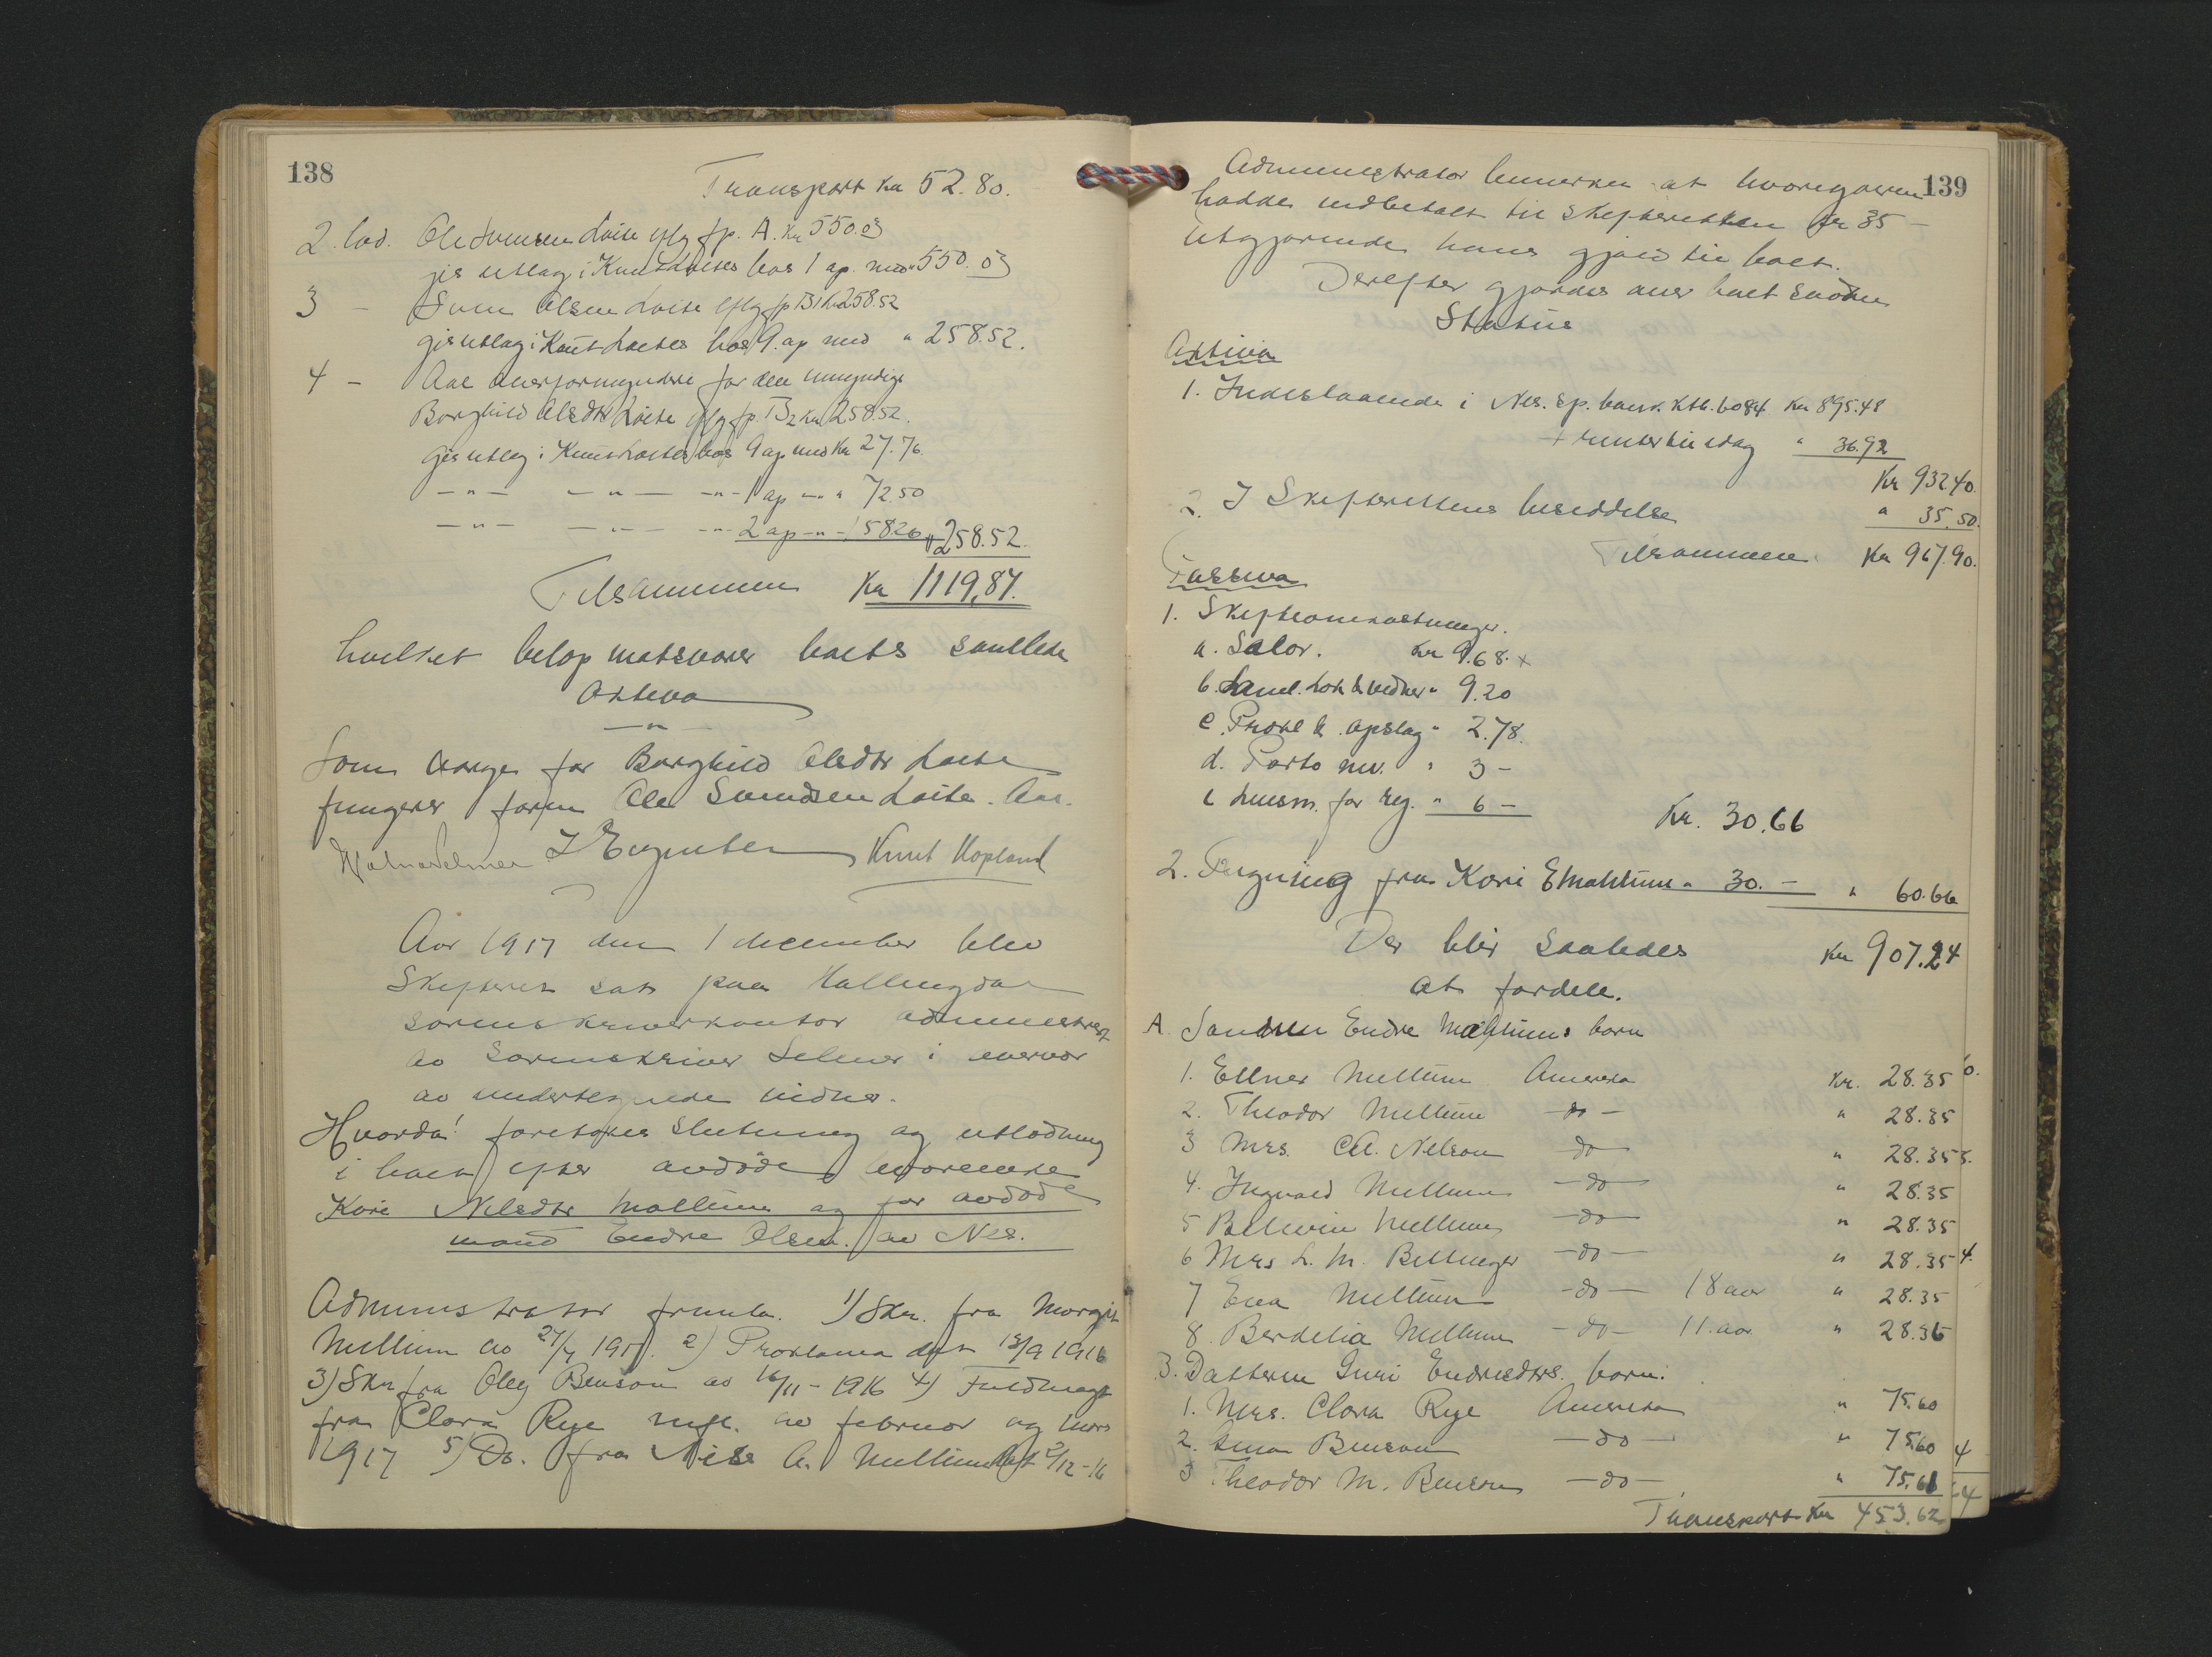 138
Transport Kr 52.80.
2. lod. Ole Svensen Loite iflg fp. A. Kr 550.03
gis utlag i Knut Loites bos 1 ap. med " 550.03
3 — Sven Olsen Loite iflg fp B1 Kr 258.52
gis utlag i Knut Loites bos 9. ap med " 258.52.
4 — Aal overformynderi for den umyndige
Borghild Olsdtr Loite iflg fp. B2 Kr 258.52.
gis utlag i Knut Loites bos 9 ap med Kr 27.76
—"— —"— —"— 1 ap —"— " 72.50
—"— —"— —"— 2 ap —"— 158.26 " 258.52.
Tilsammen Kr 1119,87.
hvilket belop motsvarer boets samlede
Aktiva
—"—
Som verge for Borghild Olsdtr Loite
fungerer Ole Svendsen Loite. Aal.
Knut Kopland
Aar 1917 den 1 december blev
Skifteret sat paa Hallingdal
sorenskriverkontor administrert
av Sorenskriver Selmer i nærvær
av undertegnede vidner.
Hvorda! foretoges slutning og utlodning
i boet efter avdøde
Kari Nilsdtr Mellum og før avdøde
mand Endre Olsen. av Nes.
Administrator freml. 1) Skr. fra Margit
Mellum av 27/7 191 . 2) Proklama dat 15/9 1916
3) Skr fra Oley Benson av 16/11 - 1916 4) Fuldmagt
fra Clara Rye mfl. av februar og mars
1917 5) Do. fra Nils A. Mellum dat 2/12 - 16
139
Administrator bemerker at
hadde indbetalt til skifteretten Kr 35 —
utgjørende hans gjæld til boet.
Derefter gjordes over boet saadan
Status
Aktiva
1. Indestaaende i Nes. Sp. bank. Ktb. 6084 Kr 895.48
+ renter til idag " 36.92
Kr 932.40.
2. I Skifterettens besiddelse " 35.50.
Tilsammen. Kr 967.90.
Passiva
1. Skifteomkostninger.
a. Salær. Kr 9.68. x
b. " 9.20
c. Prokl & opslag " 2.78.
d. Porto mv. " 3 —
e. Lensm. for reg. " 6 —
Kr. 30.66
2. Regning fra Kari E Mellum " 30. — " 60.66
Der blir saaledes Kr 907.24
at fordele.
A. Sønnen Endre Mellums barn
1. Ellner Mellum Amerika Kr. 28.35
2. Theodor Mellum — do — " 28.35
3 Mrs. C.A. Nelson do " 28.35
4. Ingvald Mellum — do — " 28.35
5 Mellum — do — " 28.35
6 Mrs L. M. Bellinger — do — " 28.35
7 Mellum — do — 18 aar " 28.35
8. Berdelia Mellum — do — 11. aar " 28.35
B. Datteren Guri Endresdtrs. barn:
1. Mrs. Clara Rye Amerika " 75.60
2. Benson — do — " 75.60
3 Theodor M. Benson — do — " 75.61
Transport Kr 453.62